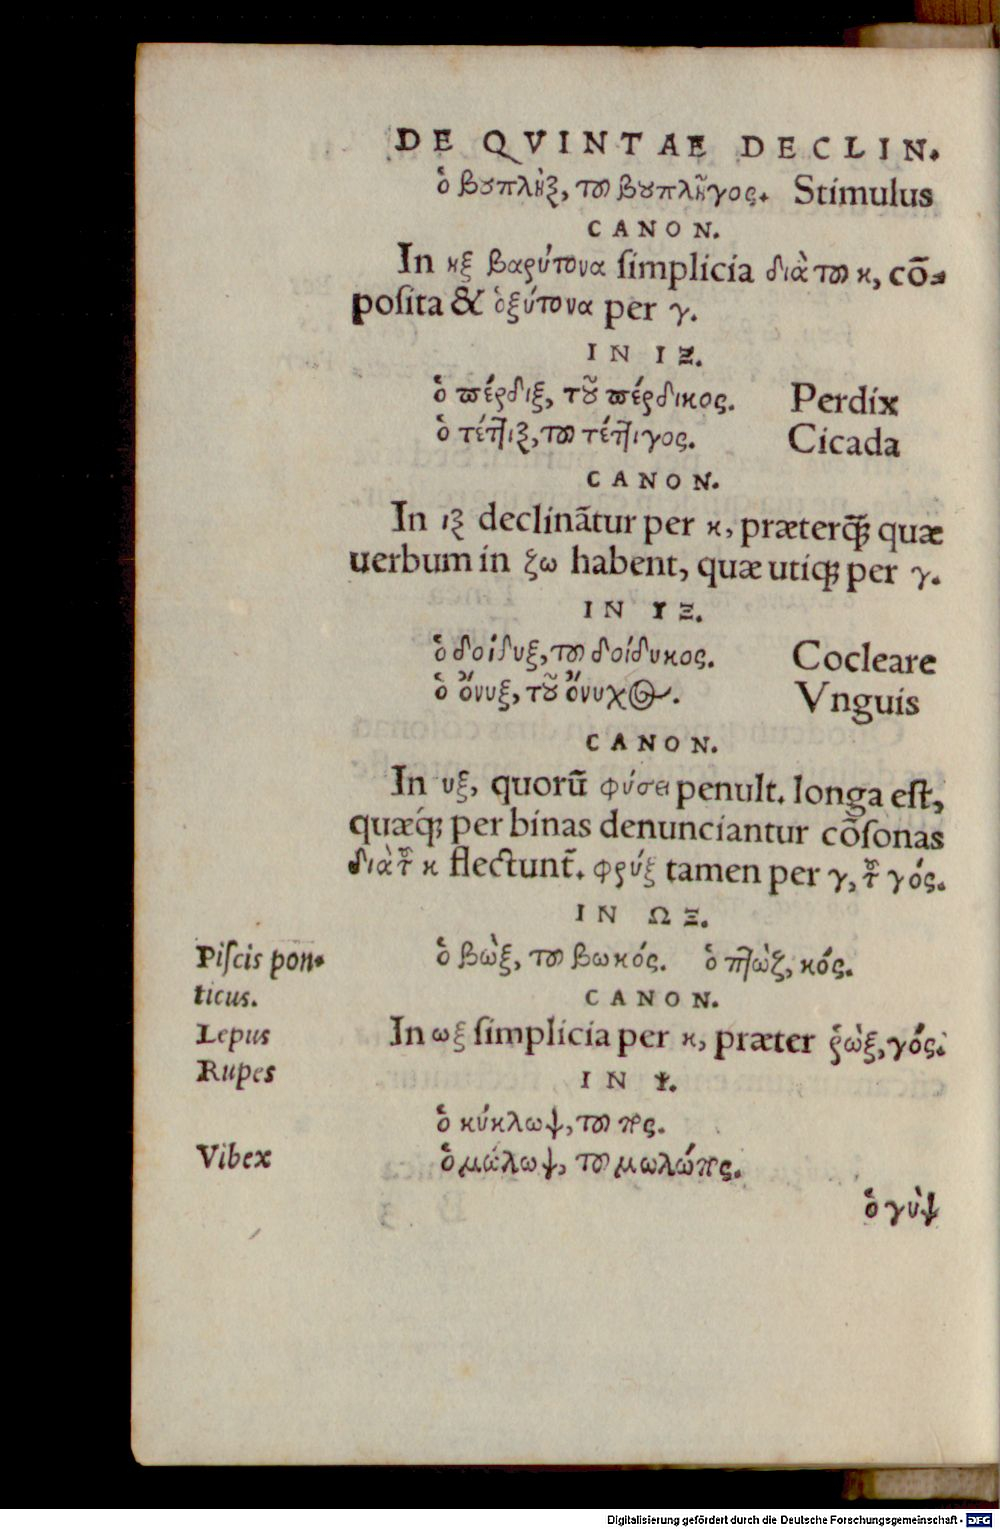 DE QVINTAE DECLIN.
ὁ βουπλὴξ, τοῦ βουπλῆγος. Stimulus
CANON.
In ηξ βαρύτονα simplicia διὰ τοῦ κ, cō-
posita & ὀξύτονα per γ.
IN ΙΞ.
ὁ πέρδιξ, τοῦ πέρδικος. Perdix
ὁ τέττιξ, τοῦ τέττιγος. Cicada
CANON.
In ιξ declinātur per κ, præterq̃ꝫ quæ
uerbum in ζω habent, quæ utiqꝫ per γ.
IN ΥΞ.
ὁ δοίδυξ, τοῦ δοίδυκος. Cocleare
ὁ ὄνυξ, τοῦ ὄνυχος. Vnguis
CANON.
In υξ, quorũ φύσει penult. longa est,
quæq́ꝫ per binas denunciantur cōsonas
διὰ τοῦ κ flectunt̃. φρύξ tamen per γ, τοῦ γός.
IN ΩΞ.
Piscis pon-
ticus.
ὁ βὼξ, τοῦ βωκός. ὁ πτὼξ, κός.
CANON.
Lepus
In ωξ simplicia per κ, præter ῥὼξ, γός.
Rupes
IN Ψ.
ὁ κύκλωψ, τοῦ πος.
Vibex
ὁ μώλωψ, τοῦ μωλώπος.
ὁ γὺψ
Digitalisierung gefördert durch die Deutsche Forschungsgemeinschaft - DFG